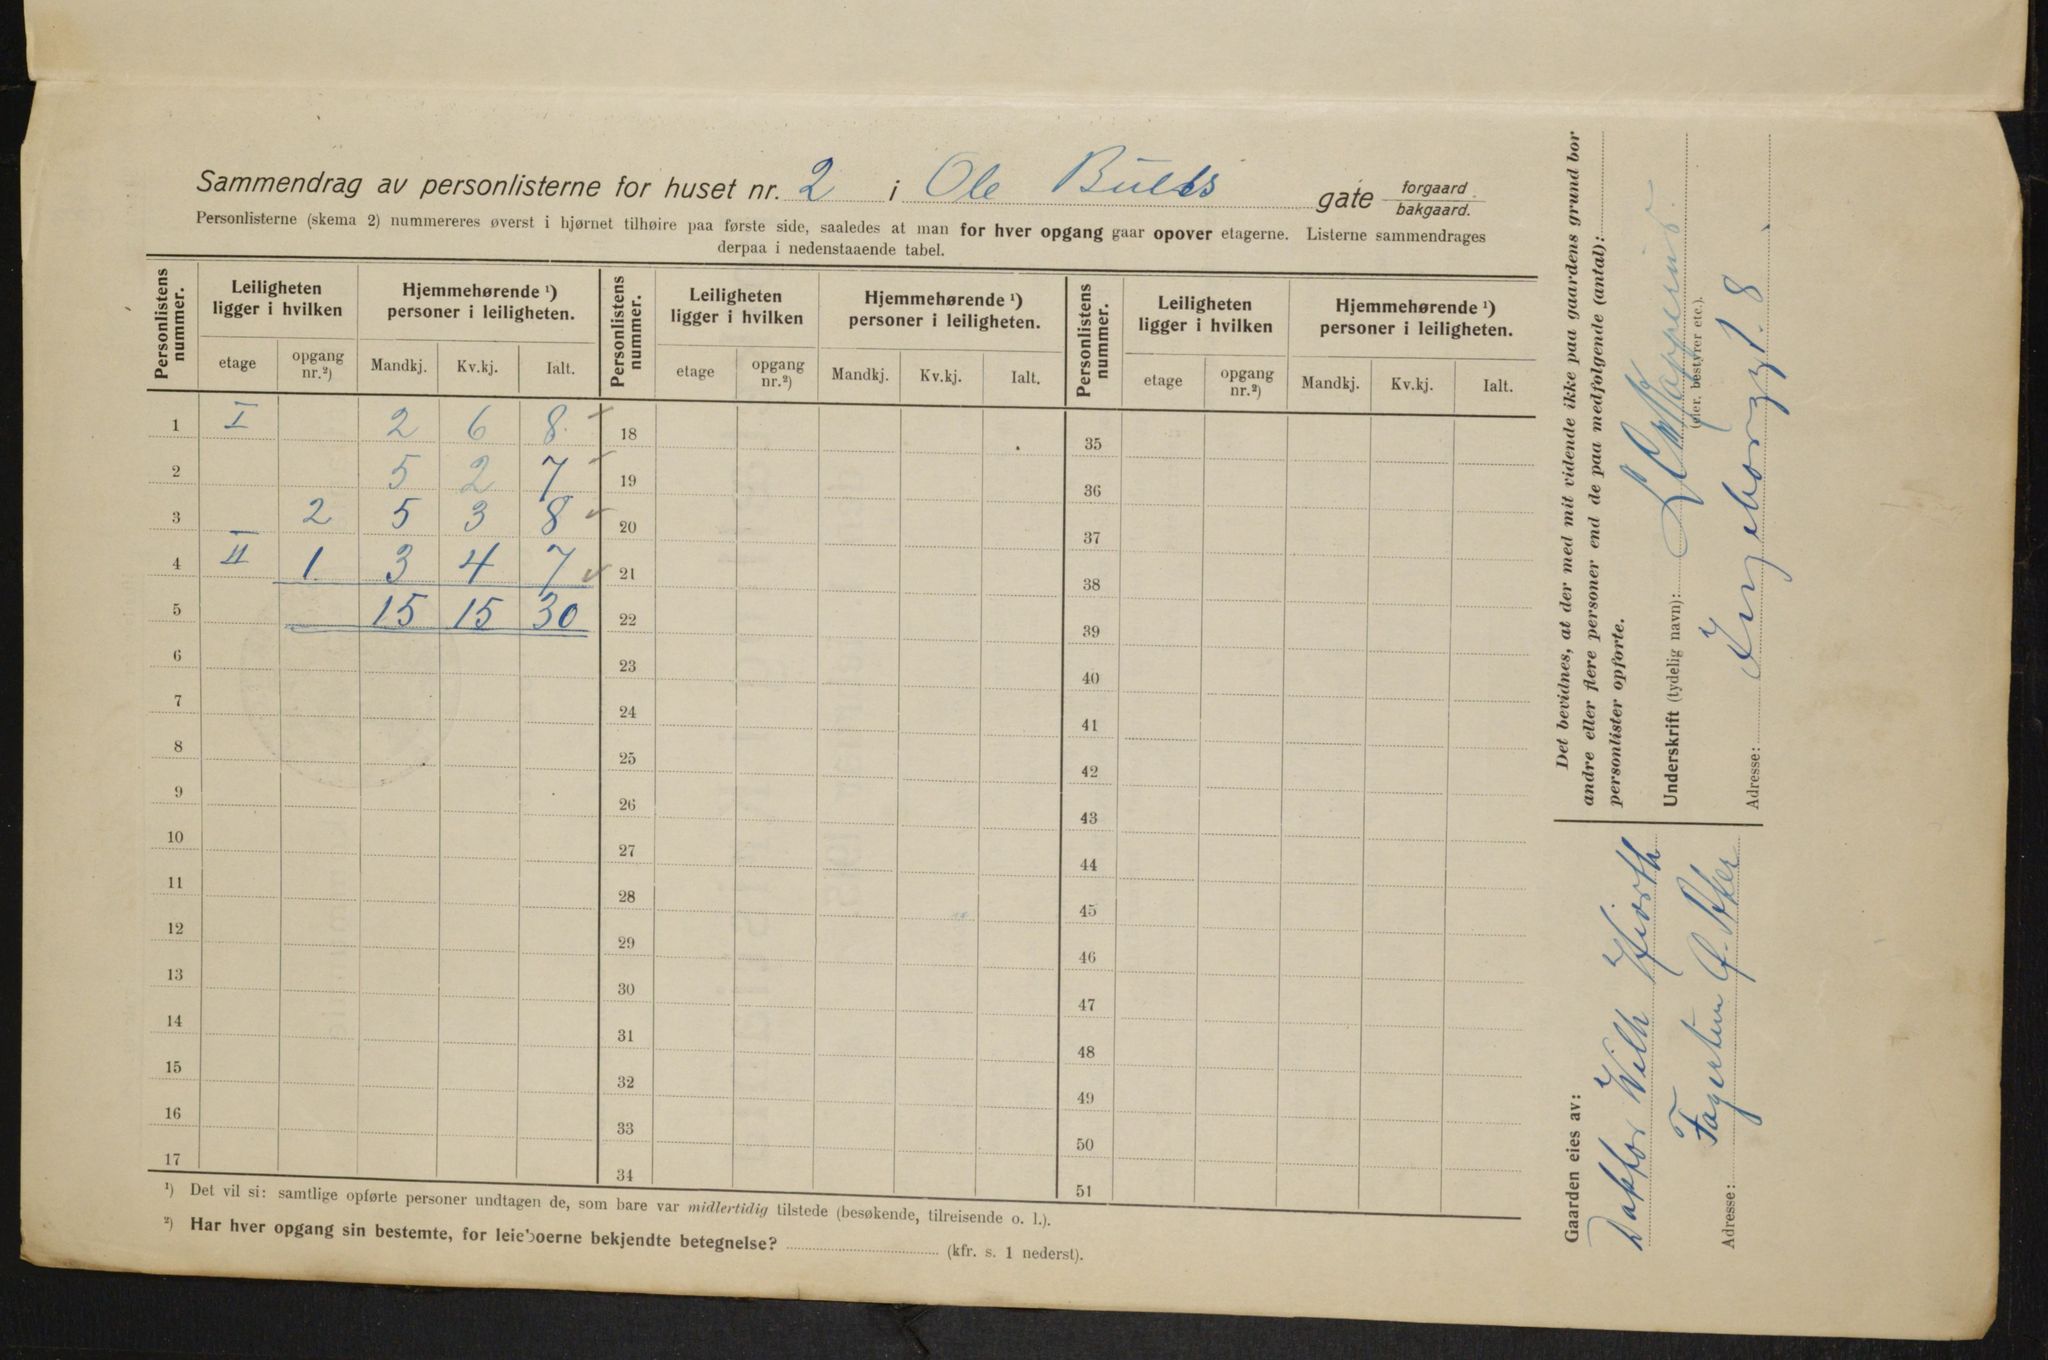 Sammendrag av personlisterne for huset nr. 2 i Ole Bulls gate forgaard / bakgaard.
Personlisterne (skema 2) nummereres øverst i hjørnet tilhøire paa første side, saaledes at man for hver opgang gaar opover etagerne. Listerne sammendrages
derpaa i nedenstaaende tabel.
Personlistens nummer. Leiligheten ligger i hvilken Hjemmehørende ¹) personer i leiligheten. Personlistens nummer. Leiligheten ligger i hvilken Hjemmehørende ¹) personer i leiligheten. Personlistens nummer. Leiligheten ligger i hvilken Hjemmehørende ¹) personer i leiligheten.
etage opgang nr.²) Mandkj. Kv.kj. Ialt. etage opgang nr.²) Mandkj. Kv.kj. Ialt. etage opgang nr.²) Mandkj. Kv.kj. Ialt.
1 I 2 6 8 18 35
2 5 2 7 19 36
3 2 5 3 8 20 37
4 II 1 3 4 7 21 38
5 15 15 30 22 39
6 23 40
7 24 41
8 25 42
9 26 43
10 27 44
11 28 45
12 29 46
13 30 47
14 31 48
15 32 49
16 33 50
17 34 51
¹) Det vil si: samtlige opførte personer undtagen de, som bare var midlertidig tilstede (besøkende, tilreisende o. l.).
²) Har hver opgang sin bestemte, for leieboerne bekjendte betegnelse? (kfr. s. 1 nederst).
Det bevidnes, at der med mit vidende ikke paa gaardens grund bor
andre eller flere personer end de paa medfølgende (antal):
personlister opførte.
Underskrift (tydelig navn):
(eier, bestyrer etc.).
Adresse: Ingeborggt. 8
Gaarden eies av:
Doktor Wilh Hjorth
Adresse: V. Aker